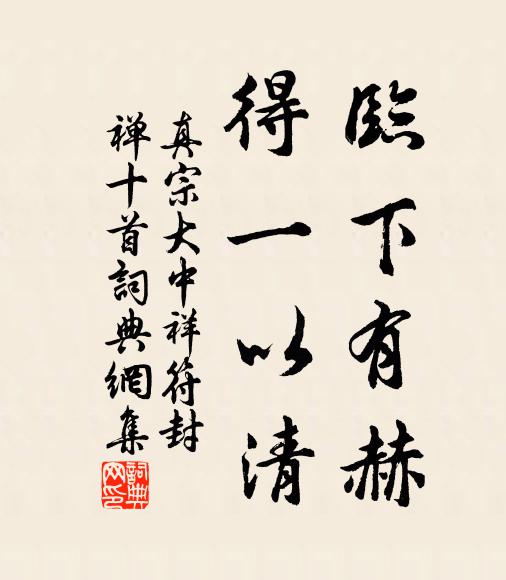 臨下有赫
得一以清
真宗大中祥符封
禅十首詞典網集
詞典
网印